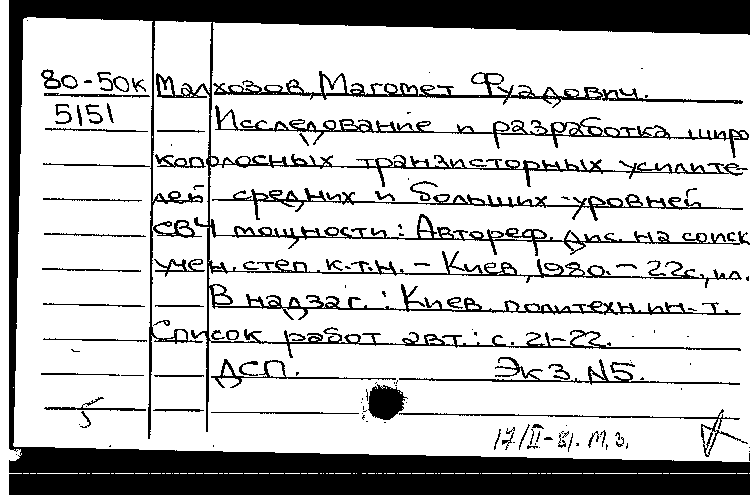 80-50к Малхозов, Магомет Фуадович.
5151 Исследование и разработка широ
кополосных транзисторных усилите-
лей средних и больших уровней
СВЧ мощности: Автореф. Дис. на соиск
учен. степ. к.т.н. – Киев, 1980. – 22с., ил.
В надзаг.: Киев. политехн. ин-т.
Список работ авт.: с. 21-22.
ДСП. Экз. №5.
5
17/II-81. М.З.